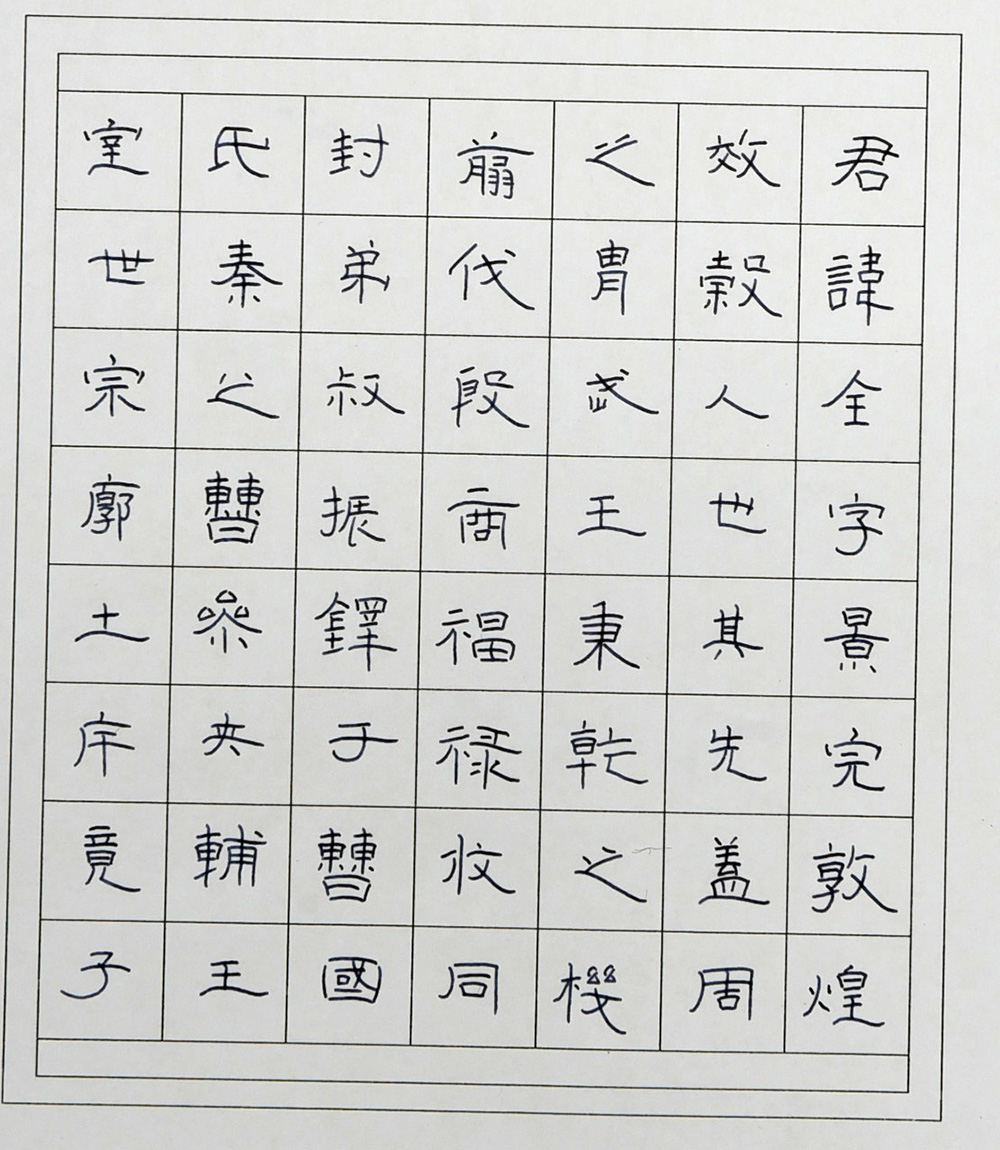 君諱全字景完敦煌
效穀人也其先盖周
之胄武王秉乾之機
翦伐殷商福禄攸同
封弟叔振鐸于曹國
氏秦之曹參夾輔王
室世宗廓土斥竟子